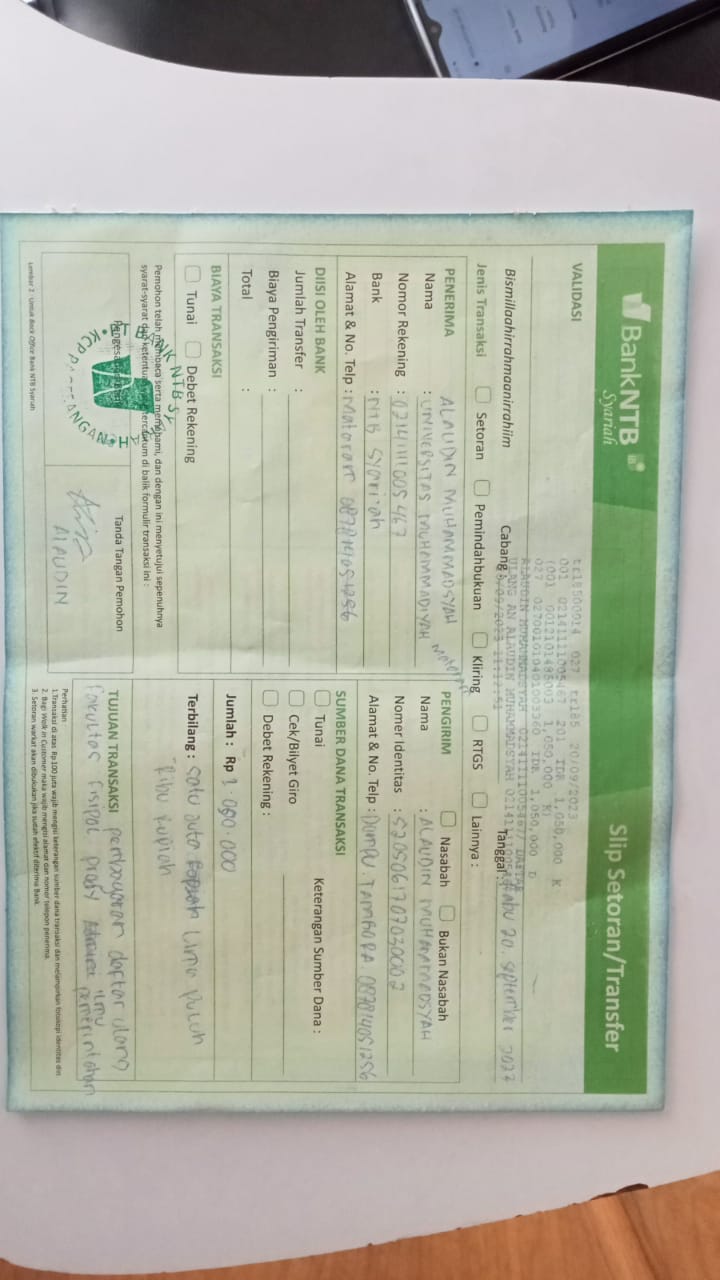 BankNTB
Syariah
Slip Setoran/Transfer
VALIDASI
tr18500014 027 tr185 20/09/2023
001 02141111005467 701 IDR 1,050,000 K
(001 0012101485003 1,050,000 K)
027 0270010104001003360 IDR 1,050,000 D
ALAUDIN MUHAMMADSYAH 02141111005467/ DAFTAR
ULANG AN ALAUDIN MUHAMMADSYAH
Bismillaahirrahmaanirrahiim
Cabang
Tanggal : Rabu 20. September 2023
Jenis Transaksi
Setoran
Pemindahbukuan
Kliring
RTGS
Lainnya :
PENERIMA
ALAUDIN MUHAMMADSYAH
Nama : UNIVERSITAS MUHAMMADIYAH Mataram
Nomor Rekening : 02141111005467
Bank : NTB Syariah
Alamat & No. Telp : Mataram 087814051256
PENGIRIM
Nasabah
Bukan Nasabah
Nama : ALAUDIN MUHAMMADSYAH
Nomer Identitas : 5205061707030002
Alamat & No. Telp : Dompu. TAMBORA. 087814051256
DIISI OLEH BANK
Jumlah Transfer :
Biaya Pengiriman :
Total :
SUMBER DANA TRANSAKSI
Tunai
Keterangan Sumber Dana :
Cek/Bilyet Giro
Debet Rekening :
BIAYA TRANSAKSI
Tunai
Debet Rekening
Jumlah : Rp 1.050.000
Terbilang : Satu Juta Lima Puluh
Ribu Rupiah
Pemohon telah membaca serta memahami, dan dengan ini menyetujui sepenuhnya
syarat-syarat dan ketentuan yang tercantum di balik formulir transaksi ini :
Pengesahan
Tanda Tangan Pemohon
ALAUDIN
BANK NTB SYARIAH
KCP
TUJUAN TRANSAKSI pembayaran daftar ulang
fakultas fisipol prody ilmu
pemerintahan
Perhatian
1. Transaksi di atas Rp.100 juta wajib mengisi keterangan sumber dana transaksi dan melampirkan fotokopi identitas diri
2. Bagi Walk in Customer maka wajib mengisi alamat dan nomor telepon penerima.
3. Setoran warkat akan dibukukan jika sudah efektif diterima Bank.
Lembar 2 : Untuk Back Office Bank NTB Syariah